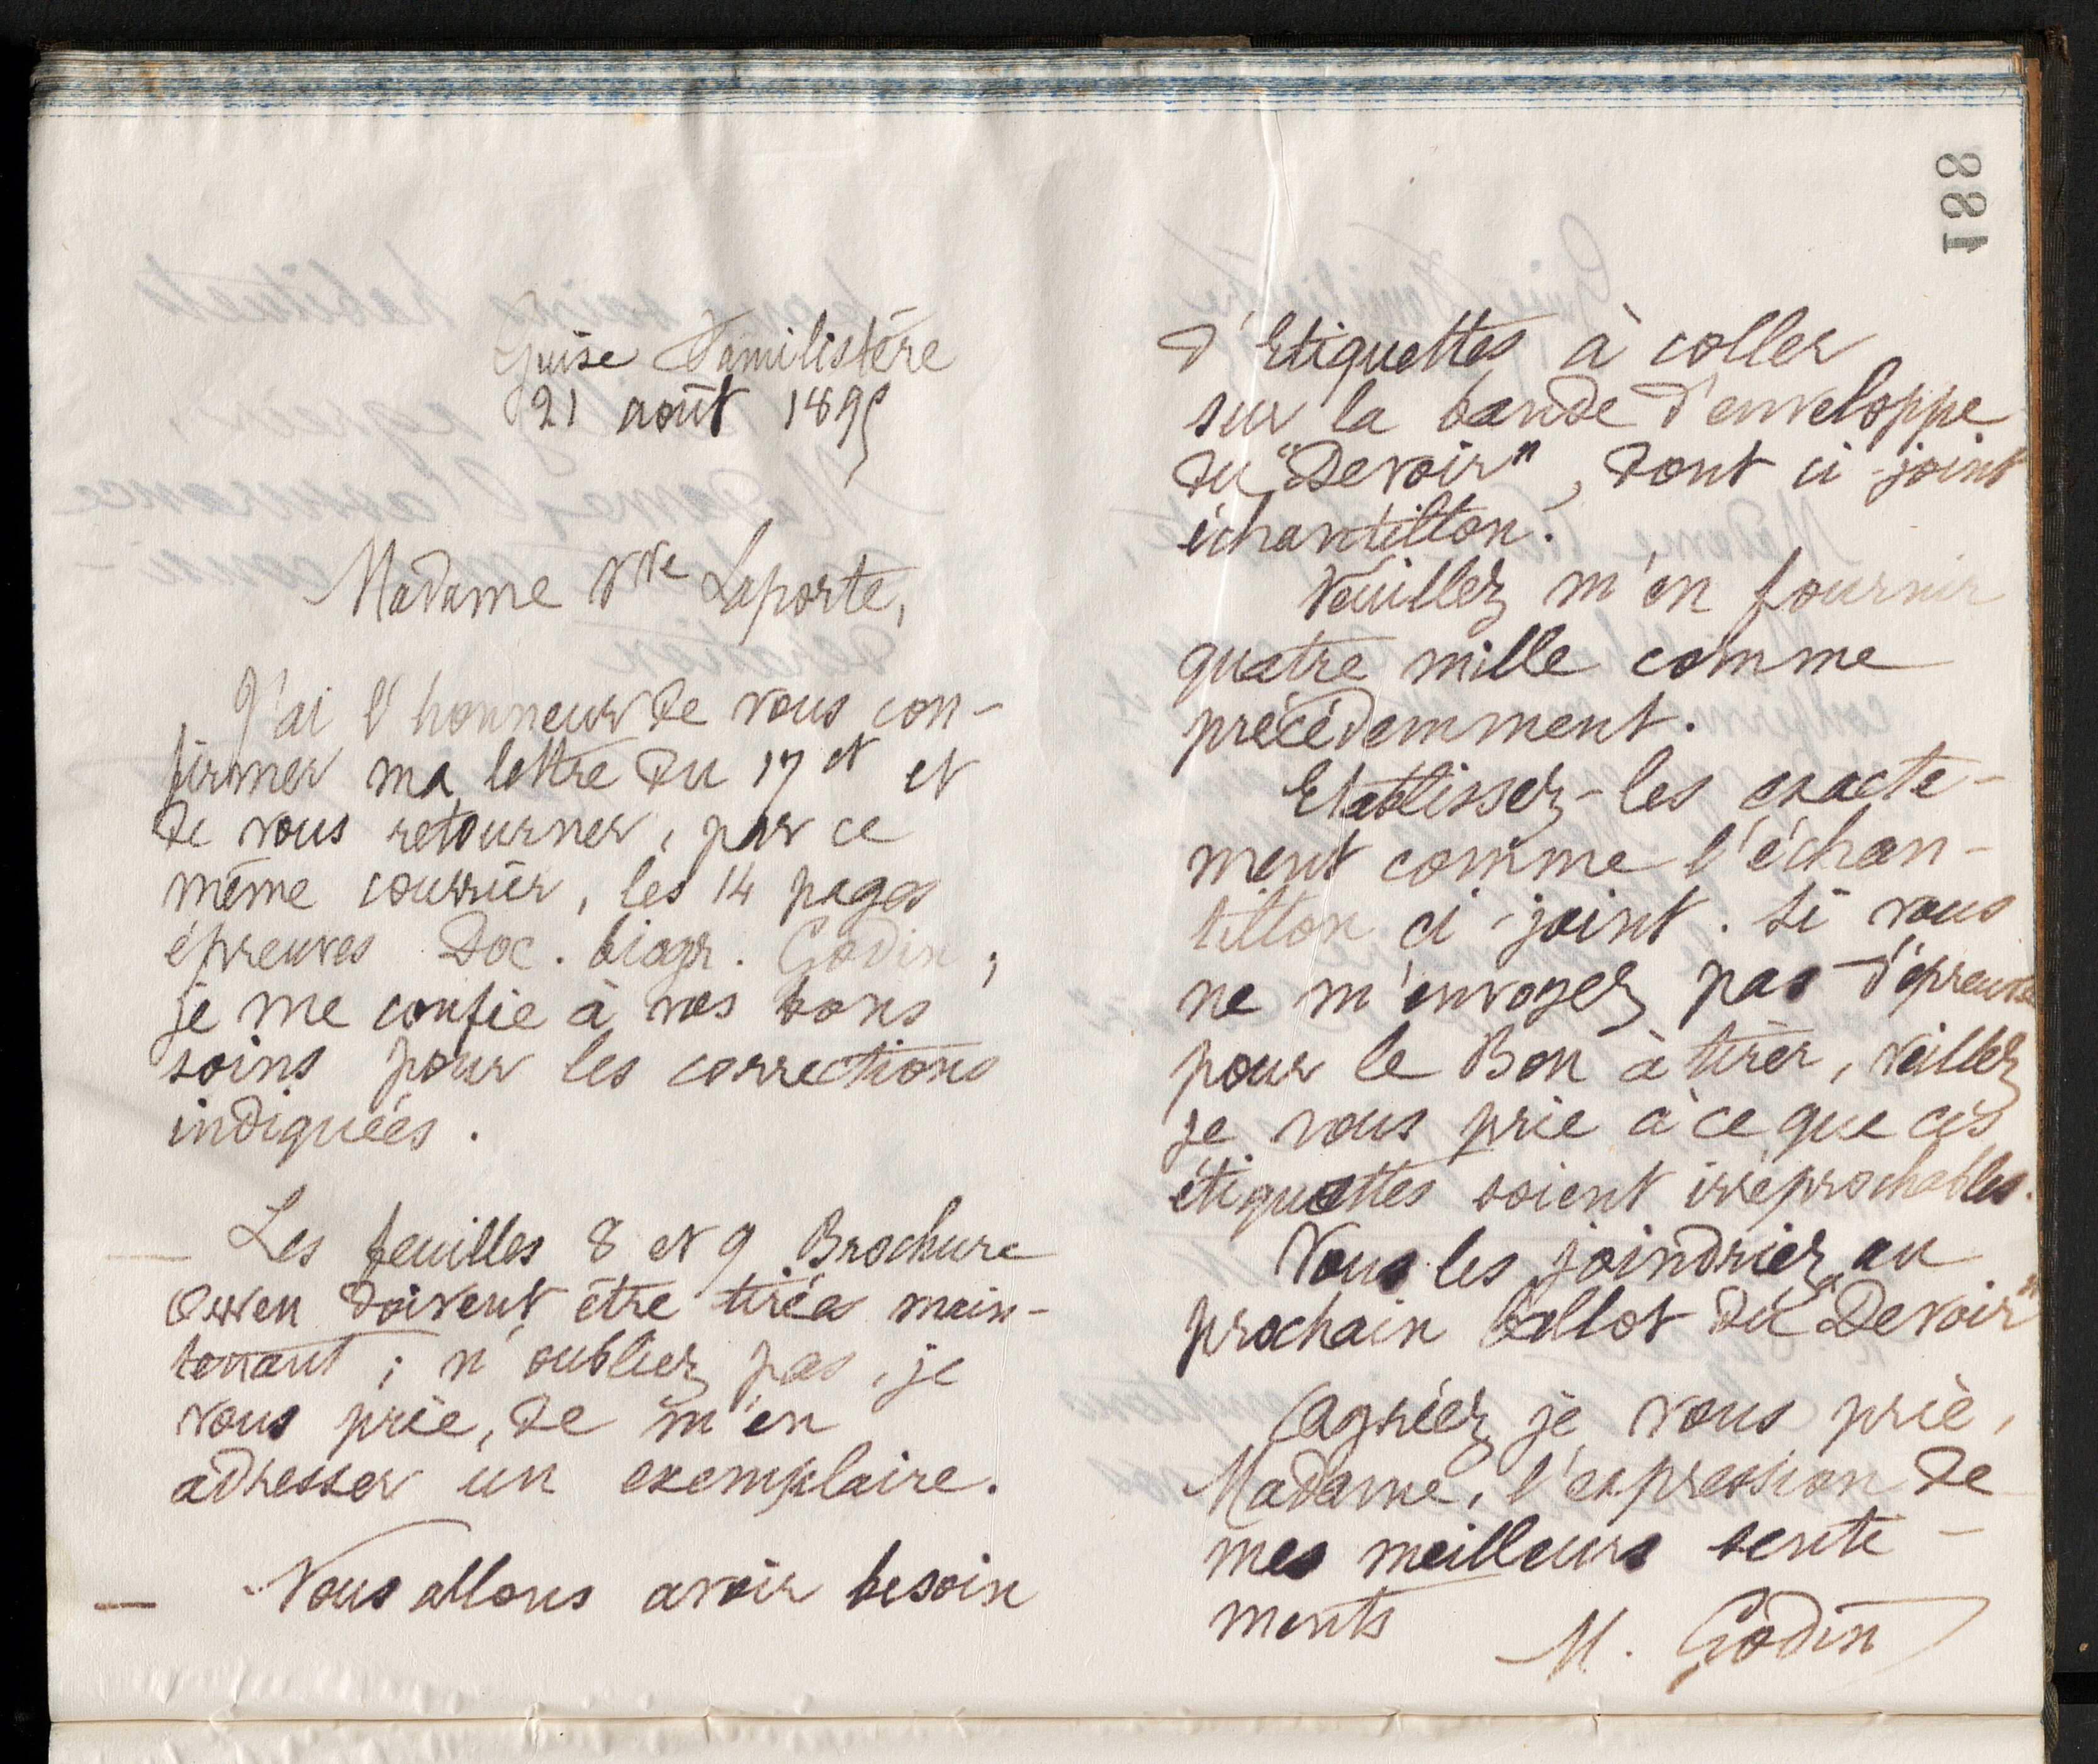 188
Guise Familistère
21 août 1895
Madame Vve Laporte,
J'ai l'honneur de vous con-
firmer ma lettre du 17 ct et
de vous retourner, par ce
même courrier, les 14 pages
épreuves Doc. biogr. Godin ;
je me confie à vos bons
soins pour les corrections
indiquées.
— Les feuilles 8 et 9 Brochure
Owen doivent être tirées main-
tenant ; n'oubliez pas, je
vous prie, de m'en
adresser un exemplaire.
— Nous allons avoir besoin
d'Etiquettes à coller
sur la bande d'enveloppe
du "Devoir", dont ci-joint
échantillon.
Veuillez m'en fournir
quatre mille comme
précédemment.
Etablissez-les exacte-
ment comme l'échan-
tillon ci-joint. Si vous
ne m'envoyez pas d'épreuve
pour le Bon à tirer, veillez
je vous prie à ce que ces
étiquettes soient irréprochables.
Vous les joindriez au
prochain ballot du "Devoir"
Agréez, je vous prie,
Madame, l'expression de
mes meilleurs senti-
ments
M. Godin